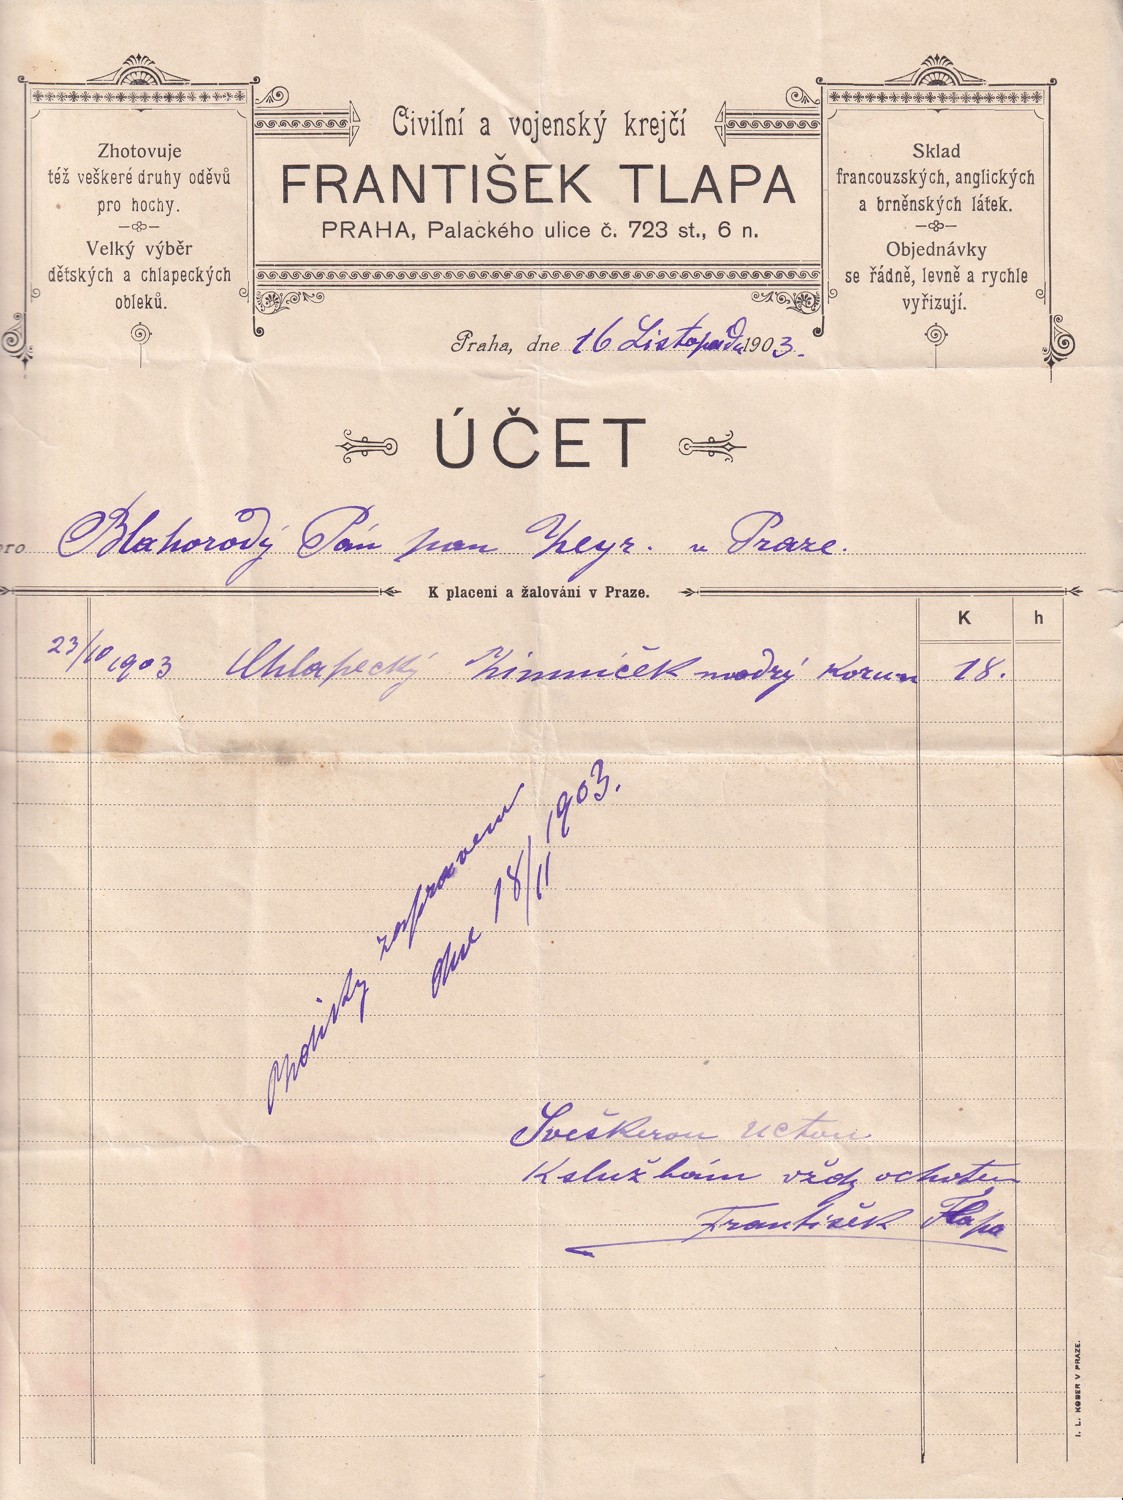 Zhotovuje
též veškeré druhy oděvů
pro hochy.
Velký výběr
dětských a chlapeckých
obleků.
Civilní a vojenský krejčí
FRANTIŠEK TLAPA
PRAHA, Palackého ulice č. 723 st., 6 n.
Sklad
francouzských, anglických
a brněnských látek.
Objednávky
se řádně, levně a rychle
vyřizují.
Praha, dne 16 Listopadu 1903.
ÚČET
pro Blahorodý Pán pan Zeyr. v Praze.
K placení a žalování v Praze.
K h
23/10 1903 Chlapecký Zimníček modrý Korun 18.
zapraveno
dne 18/11 1903.
Sveškerou uctou
K službám vždy ochoten
František Tlapa
I. L. KOBER V PRAZE.